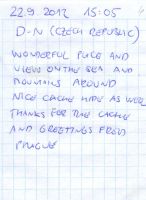 22.9.2012 15:05
D-N (CZECH REPUBLIC)
WONDERFUL PLACE AND
VIEW ON THE SEA AND
MOUNTAINS AROUND
NICE CACHE HIDE AS WELL
THANKS FOR THE CACHE
AND GREETINGS FROM
PRAGUE